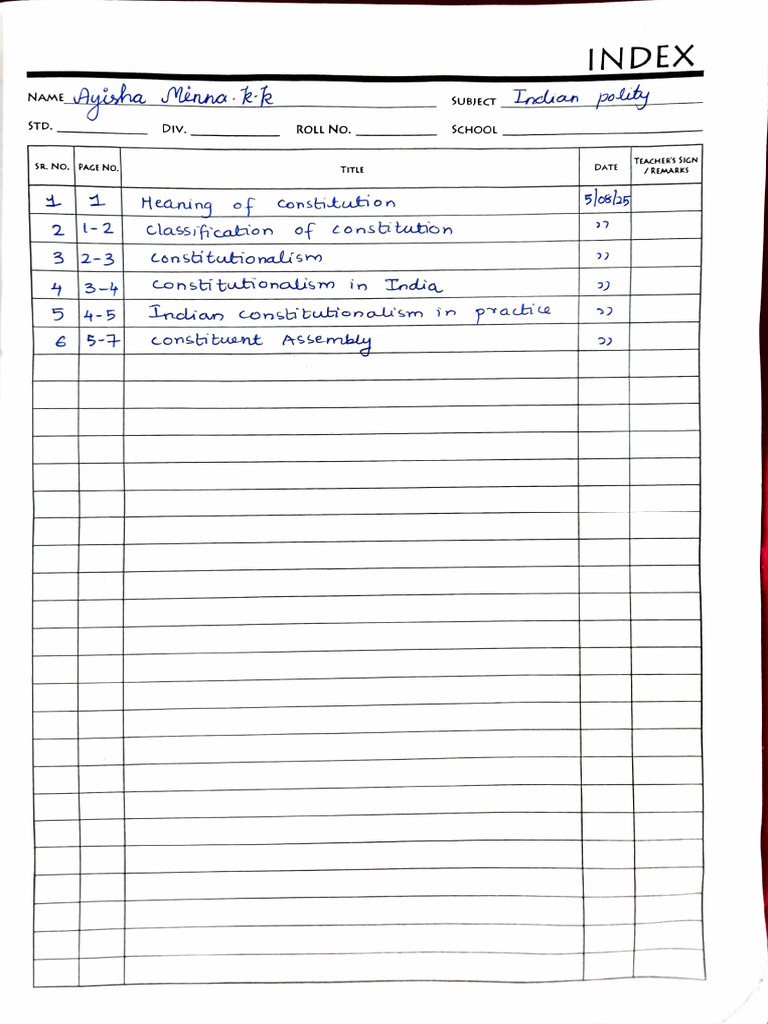 INDEX
NAME Ayisha Minna.K.K SUBJECT Indian polity
STD. DIV. ROLL NO. SCHOOL
SR. NO. PAGE NO. TITLE DATE TEACHER'S SIGN / REMARKS
1 1 Meaning of constitution 5/08/25
2 1-2 Classification of constitution ,,
3 2-3 Constitutionalism ,,
4 3-4 Constitutionalism in India ,,
5 4-5 Indian constitutionalism in practice ,,
6 5-7 Constituent Assembly ,,